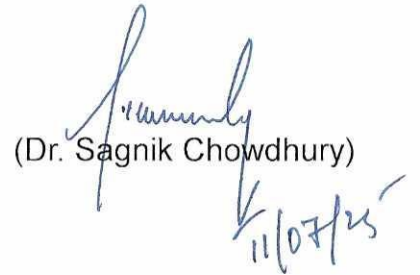 (Dr. Sagnik Chowdhury)
11/07/25